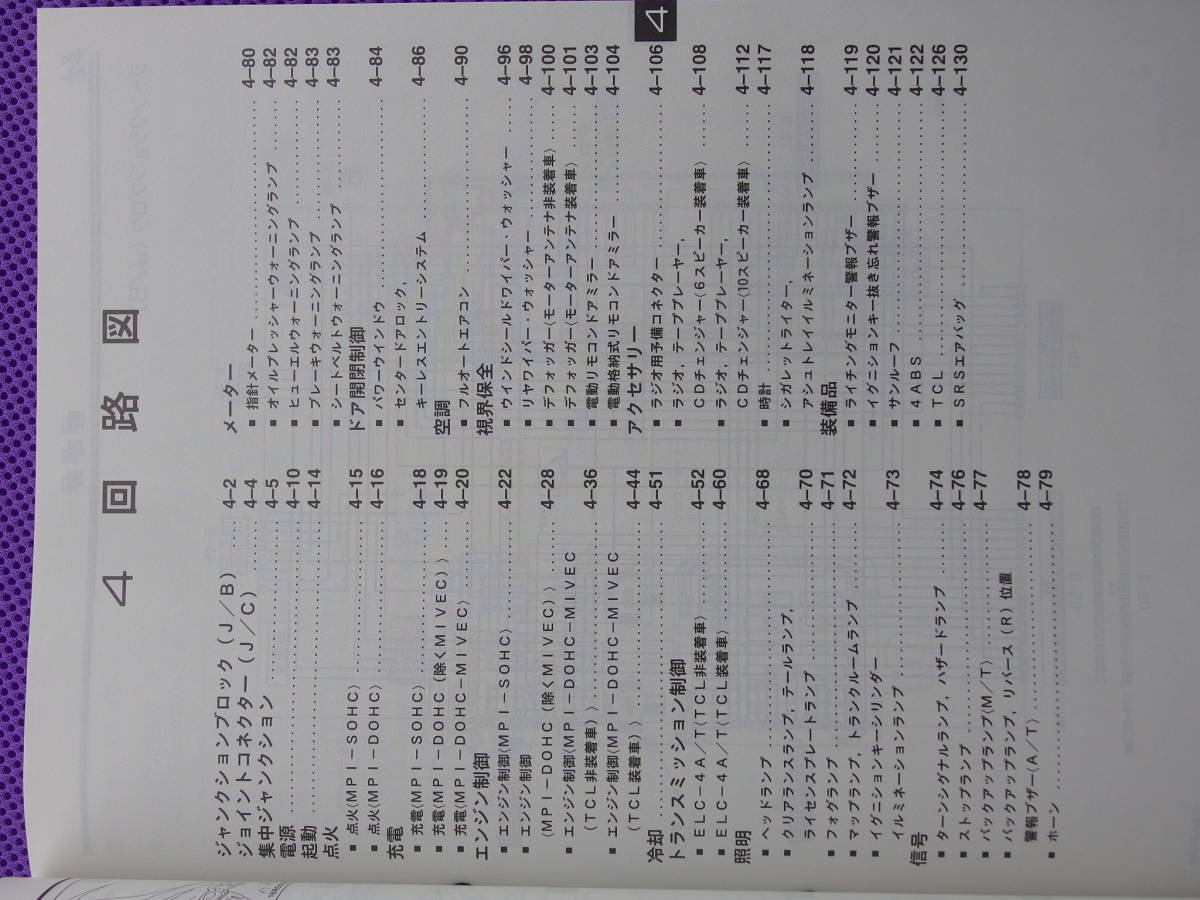 4 回 路 図
ジャンクションブロック（J／B）......4-2
ジョイントコネクター（J／C）......4-4
集中ジャンクション......4-5
電源......4-10
起動......4-14
点火
■ 点火〈MPI－SOHC〉......4-15
■ 点火〈MPI－DOHC〉......4-16
充電
■ 充電〈MPI－SOHC〉......4-18
■ 充電〈MPI－DOHC（除くMIVEC）〉......4-19
■ 充電〈MPI－DOHC－MIVEC〉......4-20
エンジン制御
■ エンジン制御〈MPI－SOHC〉......4-22
■ エンジン制御
〈MPI－DOHC（除くMIVEC）〉......4-28
■ エンジン制御〈MPI－DOHC－MIVEC
（TCL非装着車）〉......4-36
■ エンジン制御〈MPI－DOHC－MIVEC
（TCL装着車）〉......4-44
冷却......4-51
トランスミッション制御
■ ELC－4A／T〈TCL非装着車〉......4-52
■ ELC－4A／T〈TCL装着車〉......4-60
照明
■ ヘッドランプ......4-68
■ クリアランスランプ，テールランプ，
ライセンスプレートランプ......4-70
■ フォグランプ......4-71
■ マップランプ，トランクルームランプ......4-72
■ イグニションキーシリンダー
イルミネーションランプ......4-73
信号
■ ターンシグナルランプ，ハザードランプ......4-74
■ ストップランプ......4-76
■ バックアップランプ〈M／T〉......4-77
■ バックアップランプ，リバース（R）位置
警報ブザー〈A／T〉......4-78
■ ホーン......4-79
メーター
■ 指針メーター......4-80
■ オイルプレッシャーウォーニングランプ......4-82
■ ヒューエルウォーニングランプ......4-82
■ ブレーキウォーニングランプ......4-83
■ シートベルトウォーニングランプ......4-83
ドア開閉制御
■ パワーウインドウ......4-84
■ センタードアロック，
キーレスエントリーシステム......4-86
空調
■ フルオートエアコン......4-90
視界保全
■ ウインドシールドワイパー・ウォッシャー......4-96
■ リヤワイパー・ウォッシャー......4-98
■ デフォッガー〈モーターアンテナ非装着車〉......4-100
■ デフォッガー〈モーターアンテナ装着車〉......4-101
■ 電動リモコンドアミラー......4-103
■ 電動格納式リモコンドアミラー......4-104
アクセサリー
■ ラジオ用予備コネクター......4-106
■ ラジオ，テーププレーヤー，
CDチェンジャー〈6スピーカー装着車〉......4-108
■ ラジオ，テーププレーヤー，
CDチェンジャー〈10スピーカー装着車〉......4-112
■ 時計......4-117
■ シガレットライター，
アシュトレイイルミネーションランプ......4-118
装備品
■ ライチングモニター警報ブザー......4-119
■ イグニションキー抜き忘れ警報ブザー......4-120
■ サンルーフ......4-121
■ 4ABS......4-122
■ TCL......4-126
■ SRSエアバッグ......4-130
4